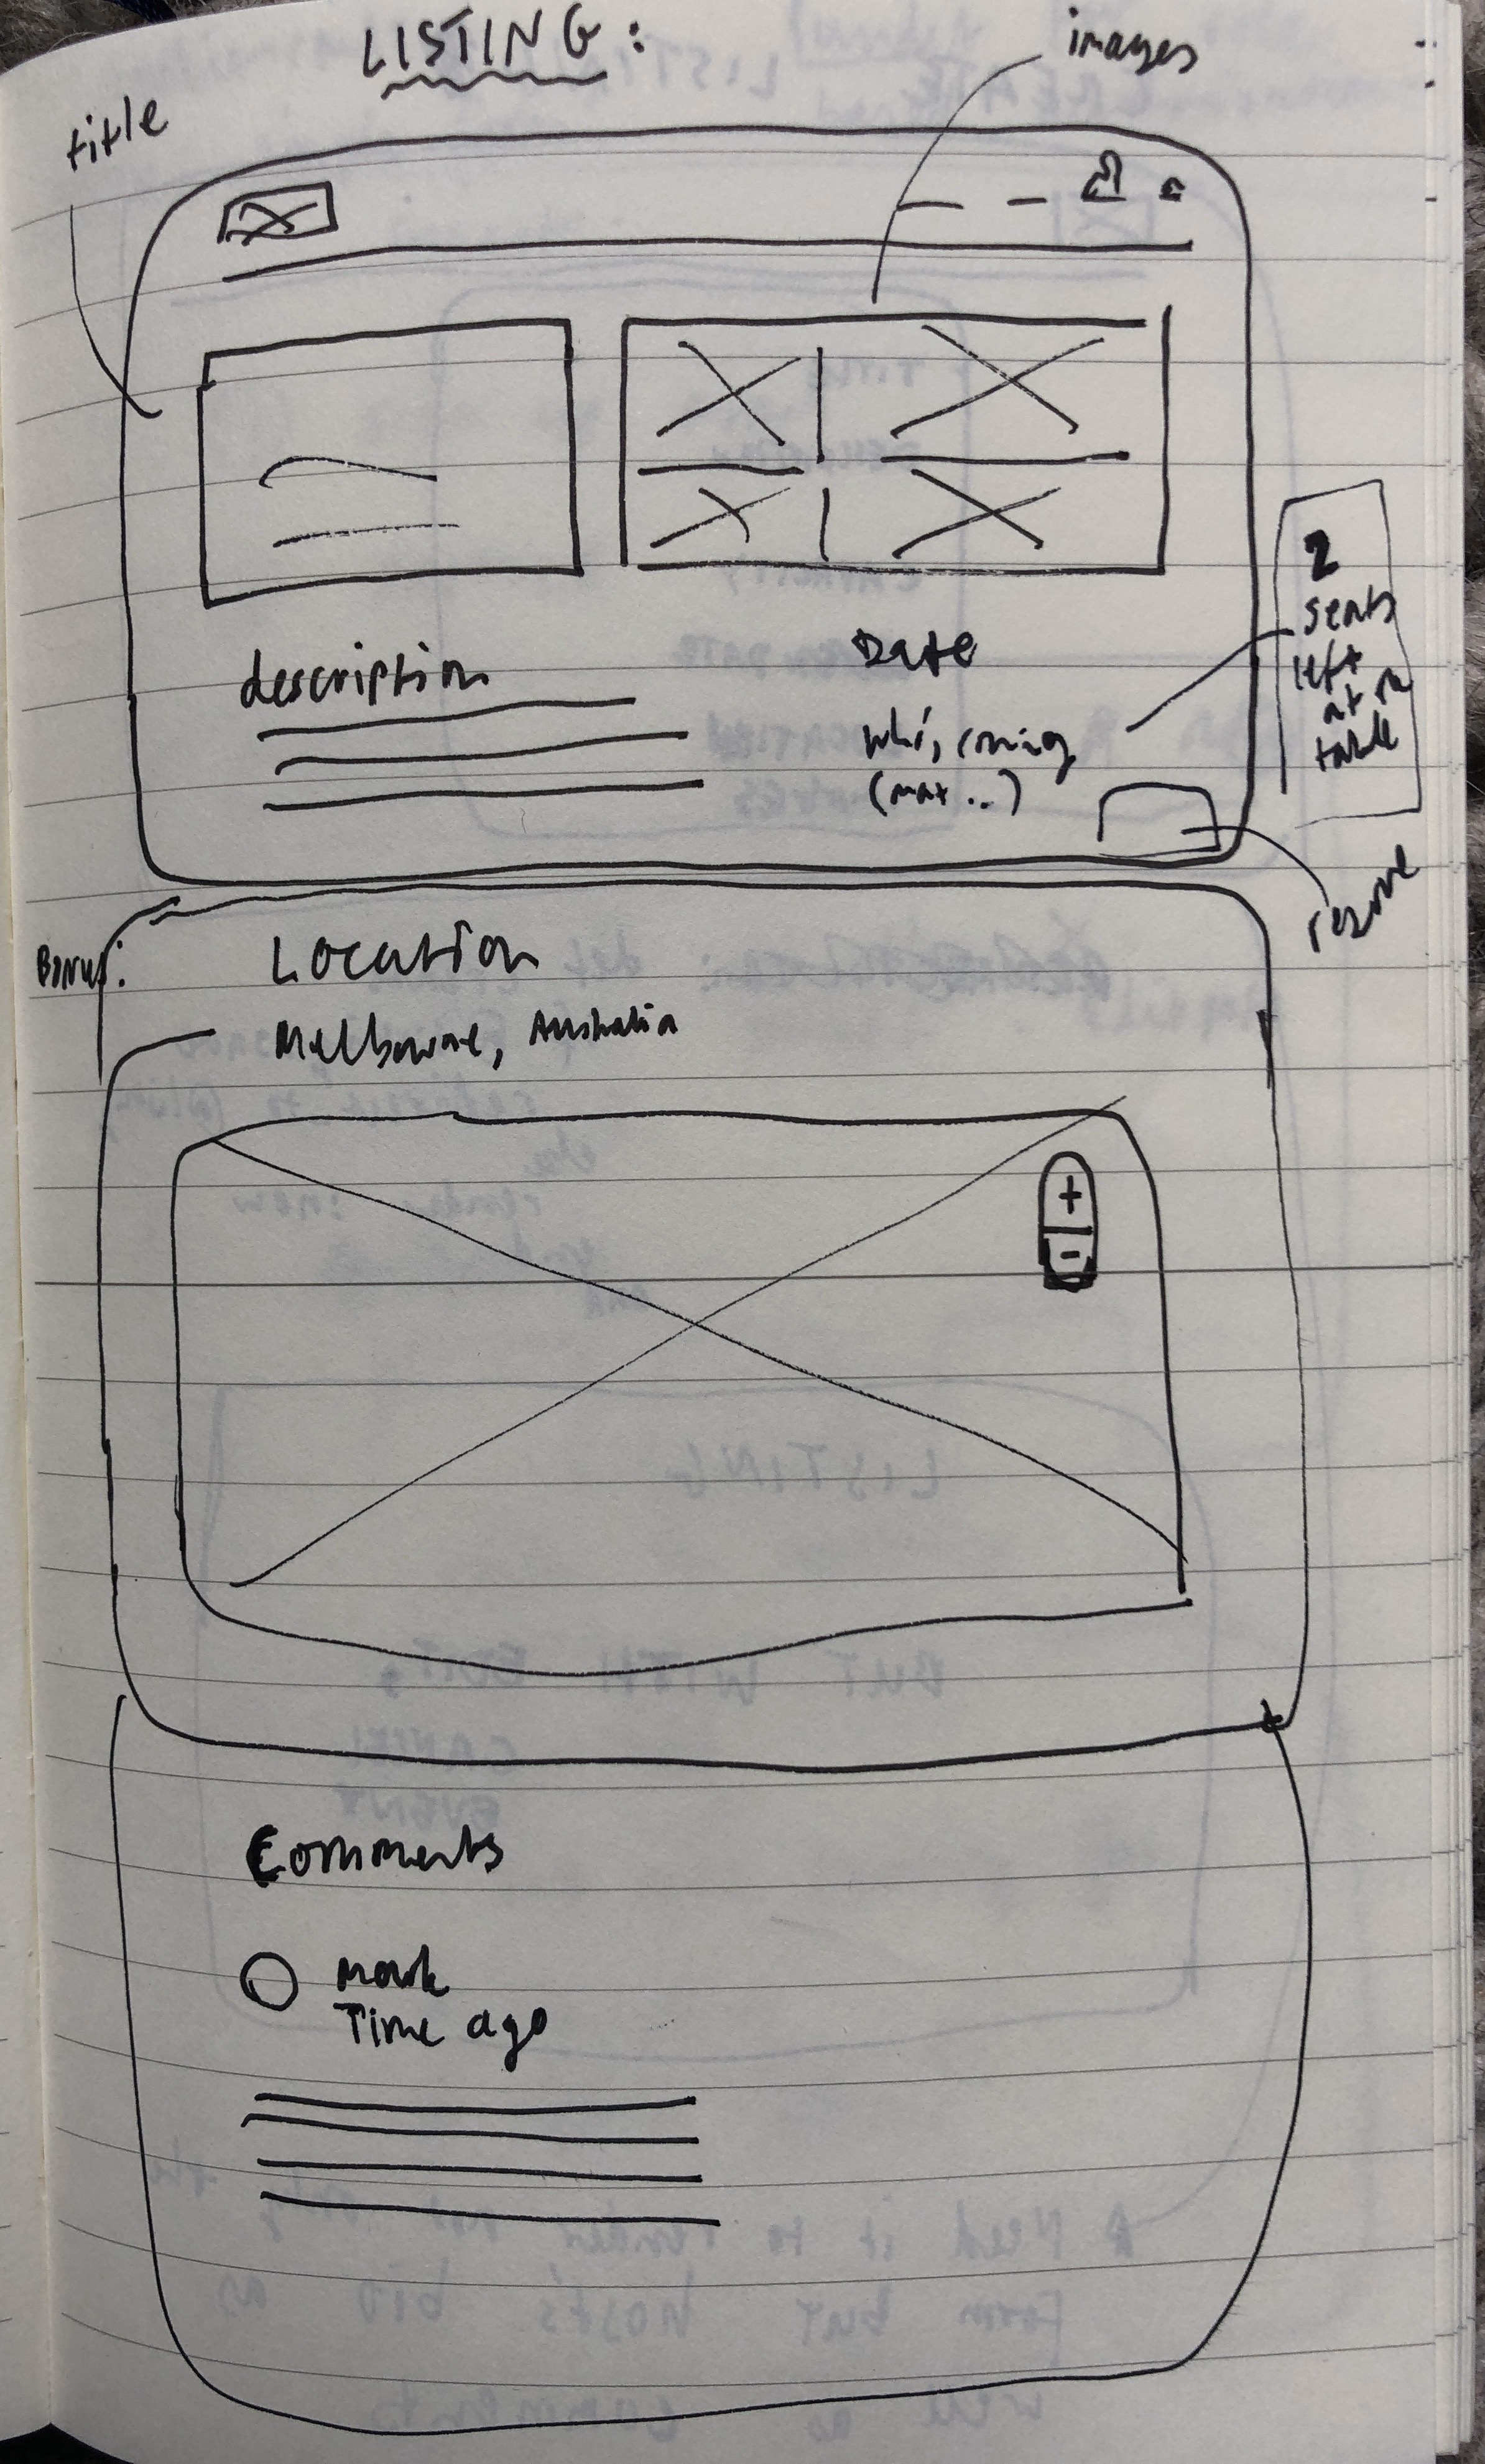 LISTING:
images
title
description
Date
who's coming
(max ..)
2
seats
left
at
table
reserve
Bonus:
Location
Melbourne, Australia
+
-
Comments
Mark
Time ago